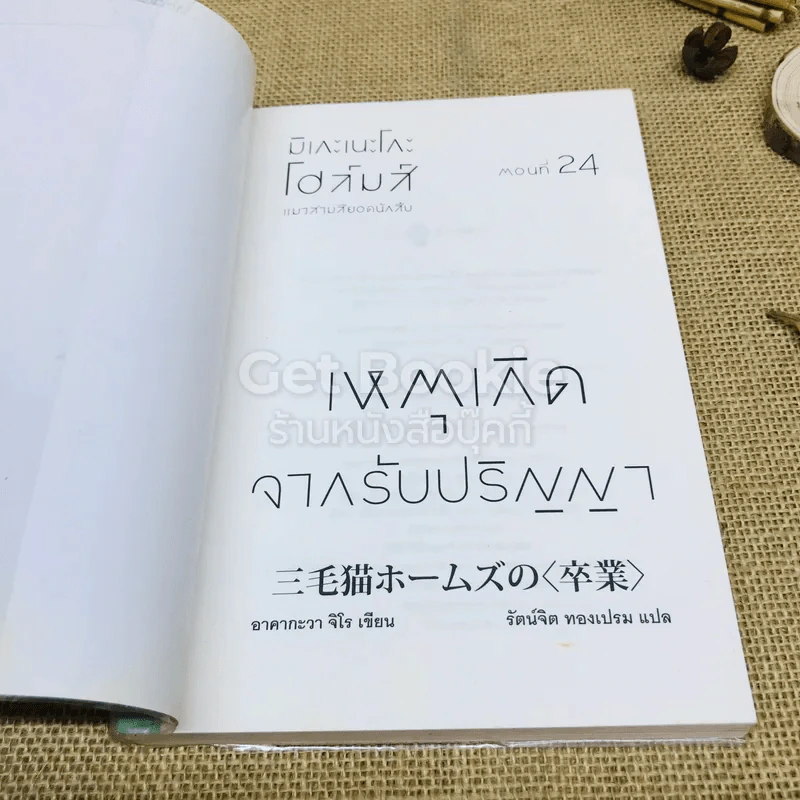 มิเกะเนะโกะ
โฮล์มส์
แมวสามสียอดนักสืบ
ตอนที่ 24
Get Bookie
เหตุเกิด
ร้านหนังสือบุ๊คกี้
จากรับปริญญา
三毛猫ホームズの〈卒業〉
อาคากะวา จิโร เขียน
รัตน์จิต ทองเปรม แปล